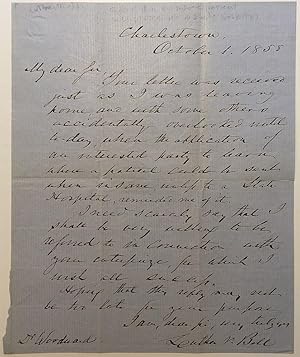 Charlestown,
October 1. 1855
My dear Sir
Your letter was received
just as I was leaving
home and with some others
accidentally overlooked until
to-day, when the application of
an interested party to learn
where a patient could be sent
when insane unfit to a State
Hospital, reminded me of it.
I need scarcely say, that I
shall be very willing to be
referred to in connection with
your enterprize for which I
wish all success.
Hoping that this reply may not
be too late for your purpose
I am, dear sir, very truly yours
Dr Woodward
Luther V. Bell